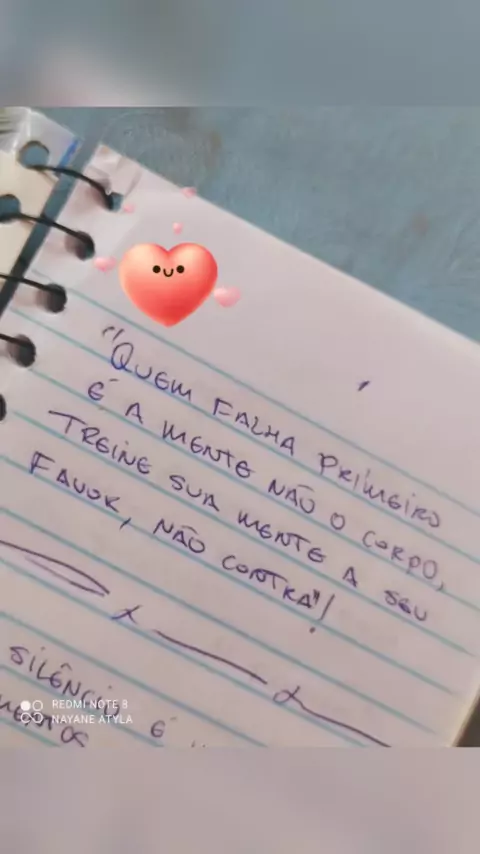 "QUEM FALHA PRIMEIRO
É A MENTE NÃO O CORPO,
TREINE SUA MENTE A SEU
FAVOR, NÃO CONTRA"!
SILÊNCIO É
REDMI NOTE 8
NAYANE ATYLA